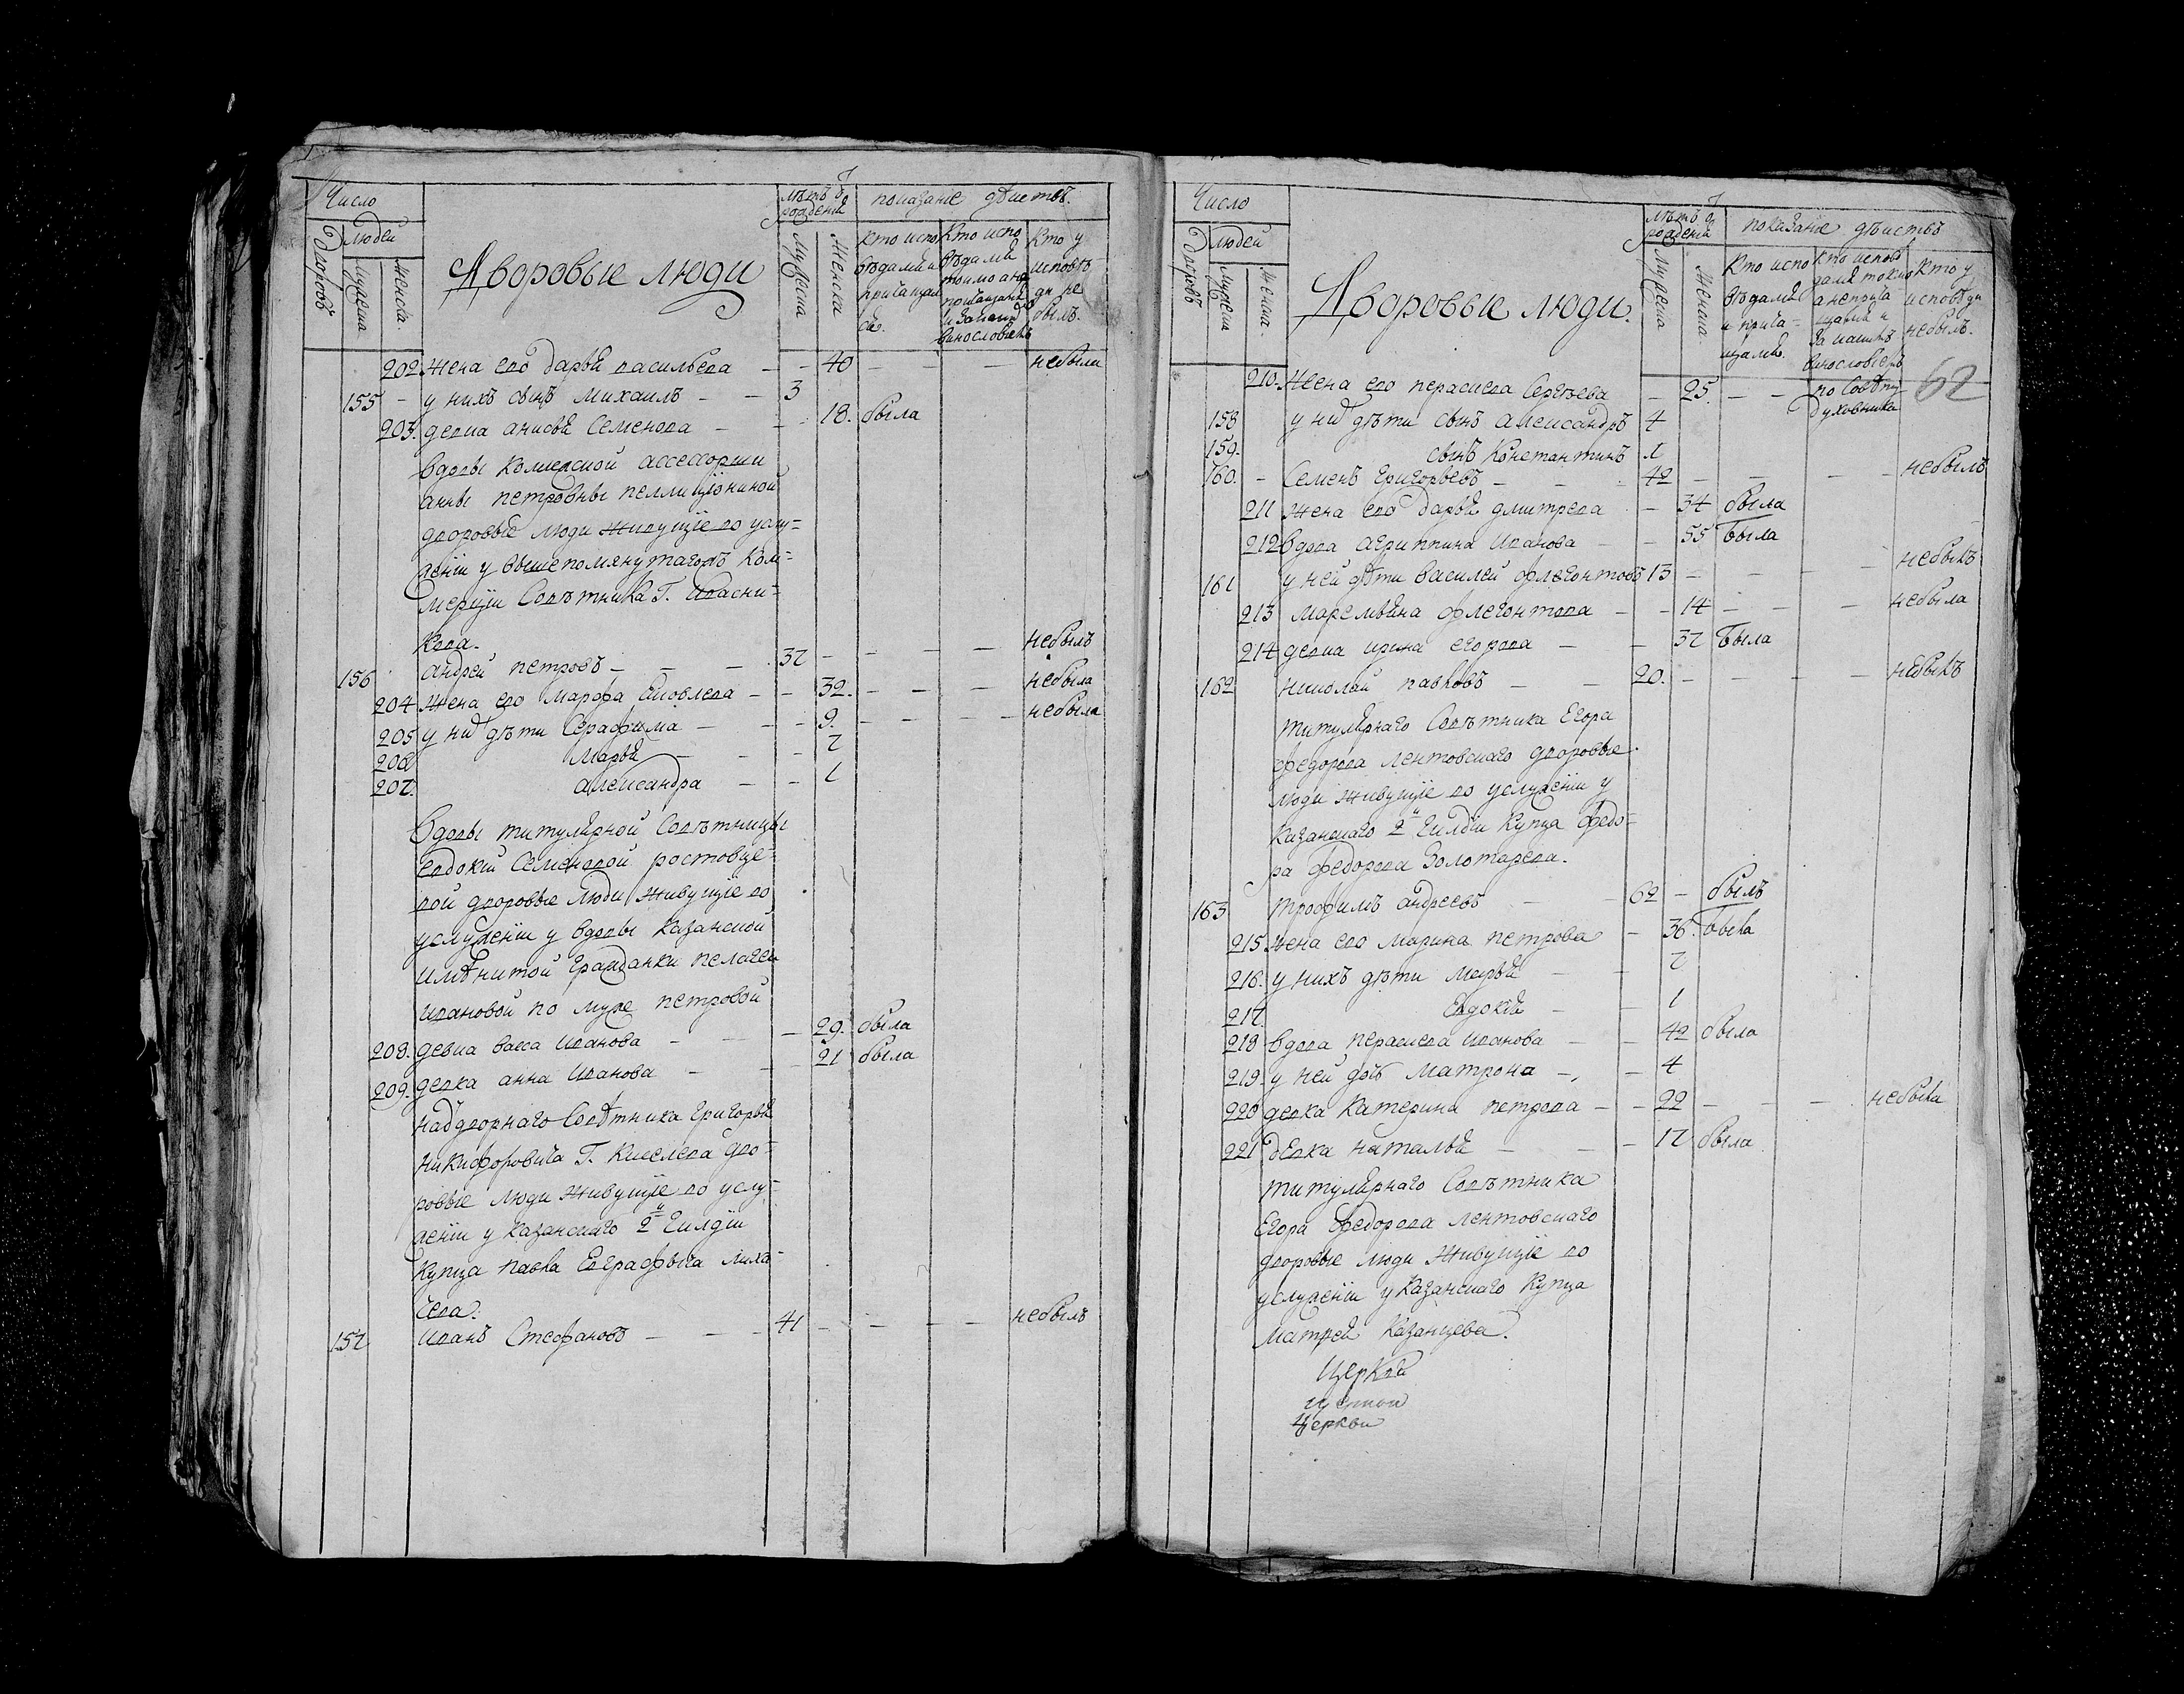 Число
людей
Дворовъ
Мужеска
Женска.
Дворовые люди
лѣтъ ѿ рожденія
Мужеска
Женска
показаніе дѣиствъ.
Кто испо
вѣдались и
причащали
ся.
Кто испо
вѣдались
токмо а не
причащались
и за какимъ
винословіемъ
Кто у
исповѣ
ди не
былъ.
202. Жена его дарья васильева - - 40 - - - небыла
155 - у нихъ сынъ Михаилъ - - 3
203. девка анисья Семенова - - 18. была
вдовы Коллежской ассессорши
анны петровны пеллиціониной
дворовые люди живущіе во услу=
женіи у вышепомянутагожъ Ком=
мерціи Совѣтника Г. Квасни=
кова.
156 андрей петровъ - - - 37 - - - - небылъ
204 Жена его Марфа Яковлева - - 32. - - - небыла
205 у ни дѣти Серафима - - - 9. - - - небыла
206 Марья - - - 7
207. александра - - 1
Вдовы титулярной Совѣтницы
евдокіи Семеновой ростовце=
вой дворовые люди живущіе во
услуженіи у вдовы Казанской
имѣнитой гражданки пелагеи
Ивановой по муже петровой
208. девка васса Иванова - - - 29. была
209. девка анна Иванова - - - 21 была
надворнаго Совѣтника григорья
никифоровича Г. Киселева дво=
ровые люди живущіе во услу=
женіи у Казанскаго 2й гилдіи
Купца павла Евграфыча Лиха=
чева.
157 иванъ Стефановъ - - - 41 - - - - небылъ
Число
людей
Дворовъ
Мужеска
Женска.
Дворовые люди.
лѣтъ ѿ рожденія
Мужеска
Женска.
показаніе дѣиствъ
Кто испо
вѣдались
и прича=
щались.
Кто исповѣ
дались токмо
а неприча
щались и
за какимъ
винословіемъ
Кто у
исповѣди
небылъ.
62
210. Жена его парасковья Сергѣева - 25. - - по Совѣту
духовника
158 у ни дѣти сынъ александръ 4
159. сынъ Констаптинъ 1
160. - Семенъ Григорьевъ - - - 42 - - - - небылъ
211 Жена его дарья дмитрева - - 34 была
212 вдова агрипина Иванова - - 55 была
161 у ней дѣти василей флегонтовъ 13 - - - - небылъ
213 маремьяна флегонтова - - 14 - - - небыла
214 девка ирина егорова - - 37 была
162 николай павловъ - - 20. - - - - небылъ
титулярнаго Совѣтника Егора
федорова лентовскаго дворовые
люди живущіе во услуженіи у
Казанскаго 2й гилдіи Купца Федо=
ра Федорова Золотарева.
163 трофимъ андреевъ - - 62 - былъ
215 жена его марина петрова - 36. была
216. у нихъ дѣти марья - - 7
217. Евдокія - - 1
218 вдова парасковья иванова - - 42 была
219. у ней дочь матрона - - 4
220 девка Катерина петрова - - 22 - - - небыла
221 девка наталья - - - 17 была
титулярнаго Совѣтника
Егора Федорова лентовскаго
дворовые люди живущіе во
услуженіи у Казанскаго Купца
матвея Казанцева.
Церкви
церкви
Церкви